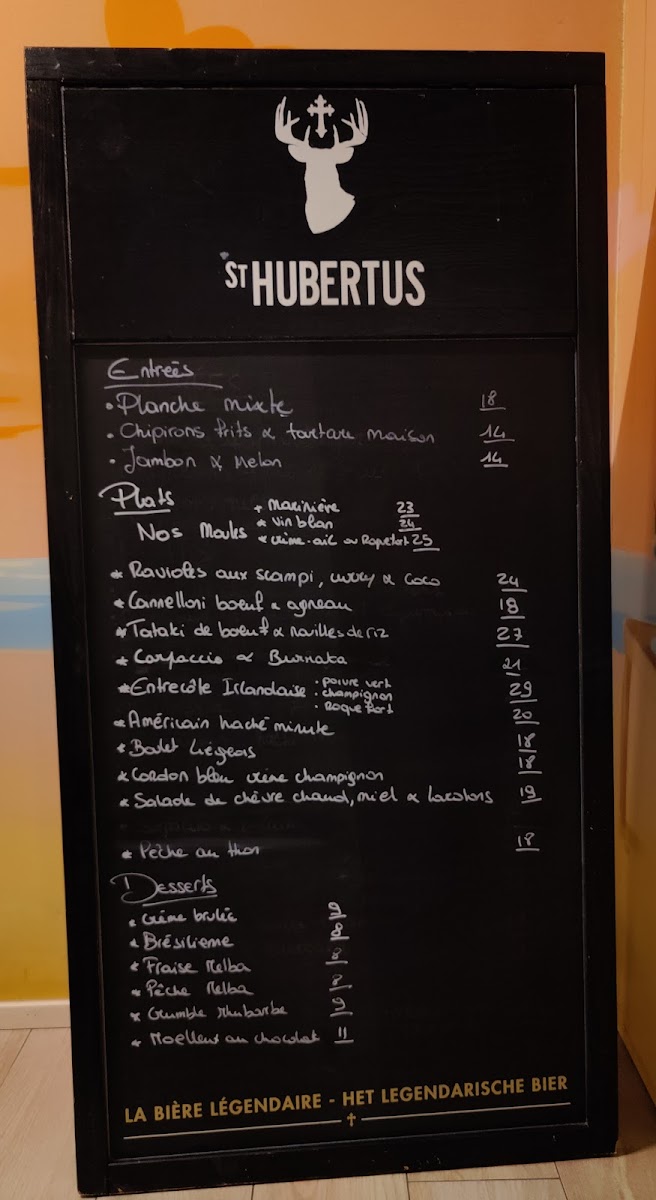 ST HUBERTUS
Entreés
• Planche mixte 18
• Chipirons frits & tartare maison 14
• Jambon & Melon 14
Plats
Nos Moules
+ Marinière 23
* Vin blan 24
* crème-ail ou Roquefort 25
* Ravioles aux scampi, curry & coco 24
* Cannelloni boeuf & agneau 18
* Tataki de boeuf & nouilles de riz 27
* Carpaccio & Burrata 21
* Entrecôte Irlandaise : • poivre vert 29
• champignon
• Roquefort
* Américain haché minute 20
* Boulet Liégeois 18
* Cordon bleu crème champignon 18
* Salade de chèvre chaud, miel & lardons 19
* Pêche au thon 18
Desserts
* Crème brulée 9
* Brésilienne 8
* Fraise Melba 8
* Pêche Melba 8
* Crumble rhubarbe 9
* Moelleux au chocolat 11
LA BIÈRE LÉGENDAIRE - HET LEGENDARISCHE BIER